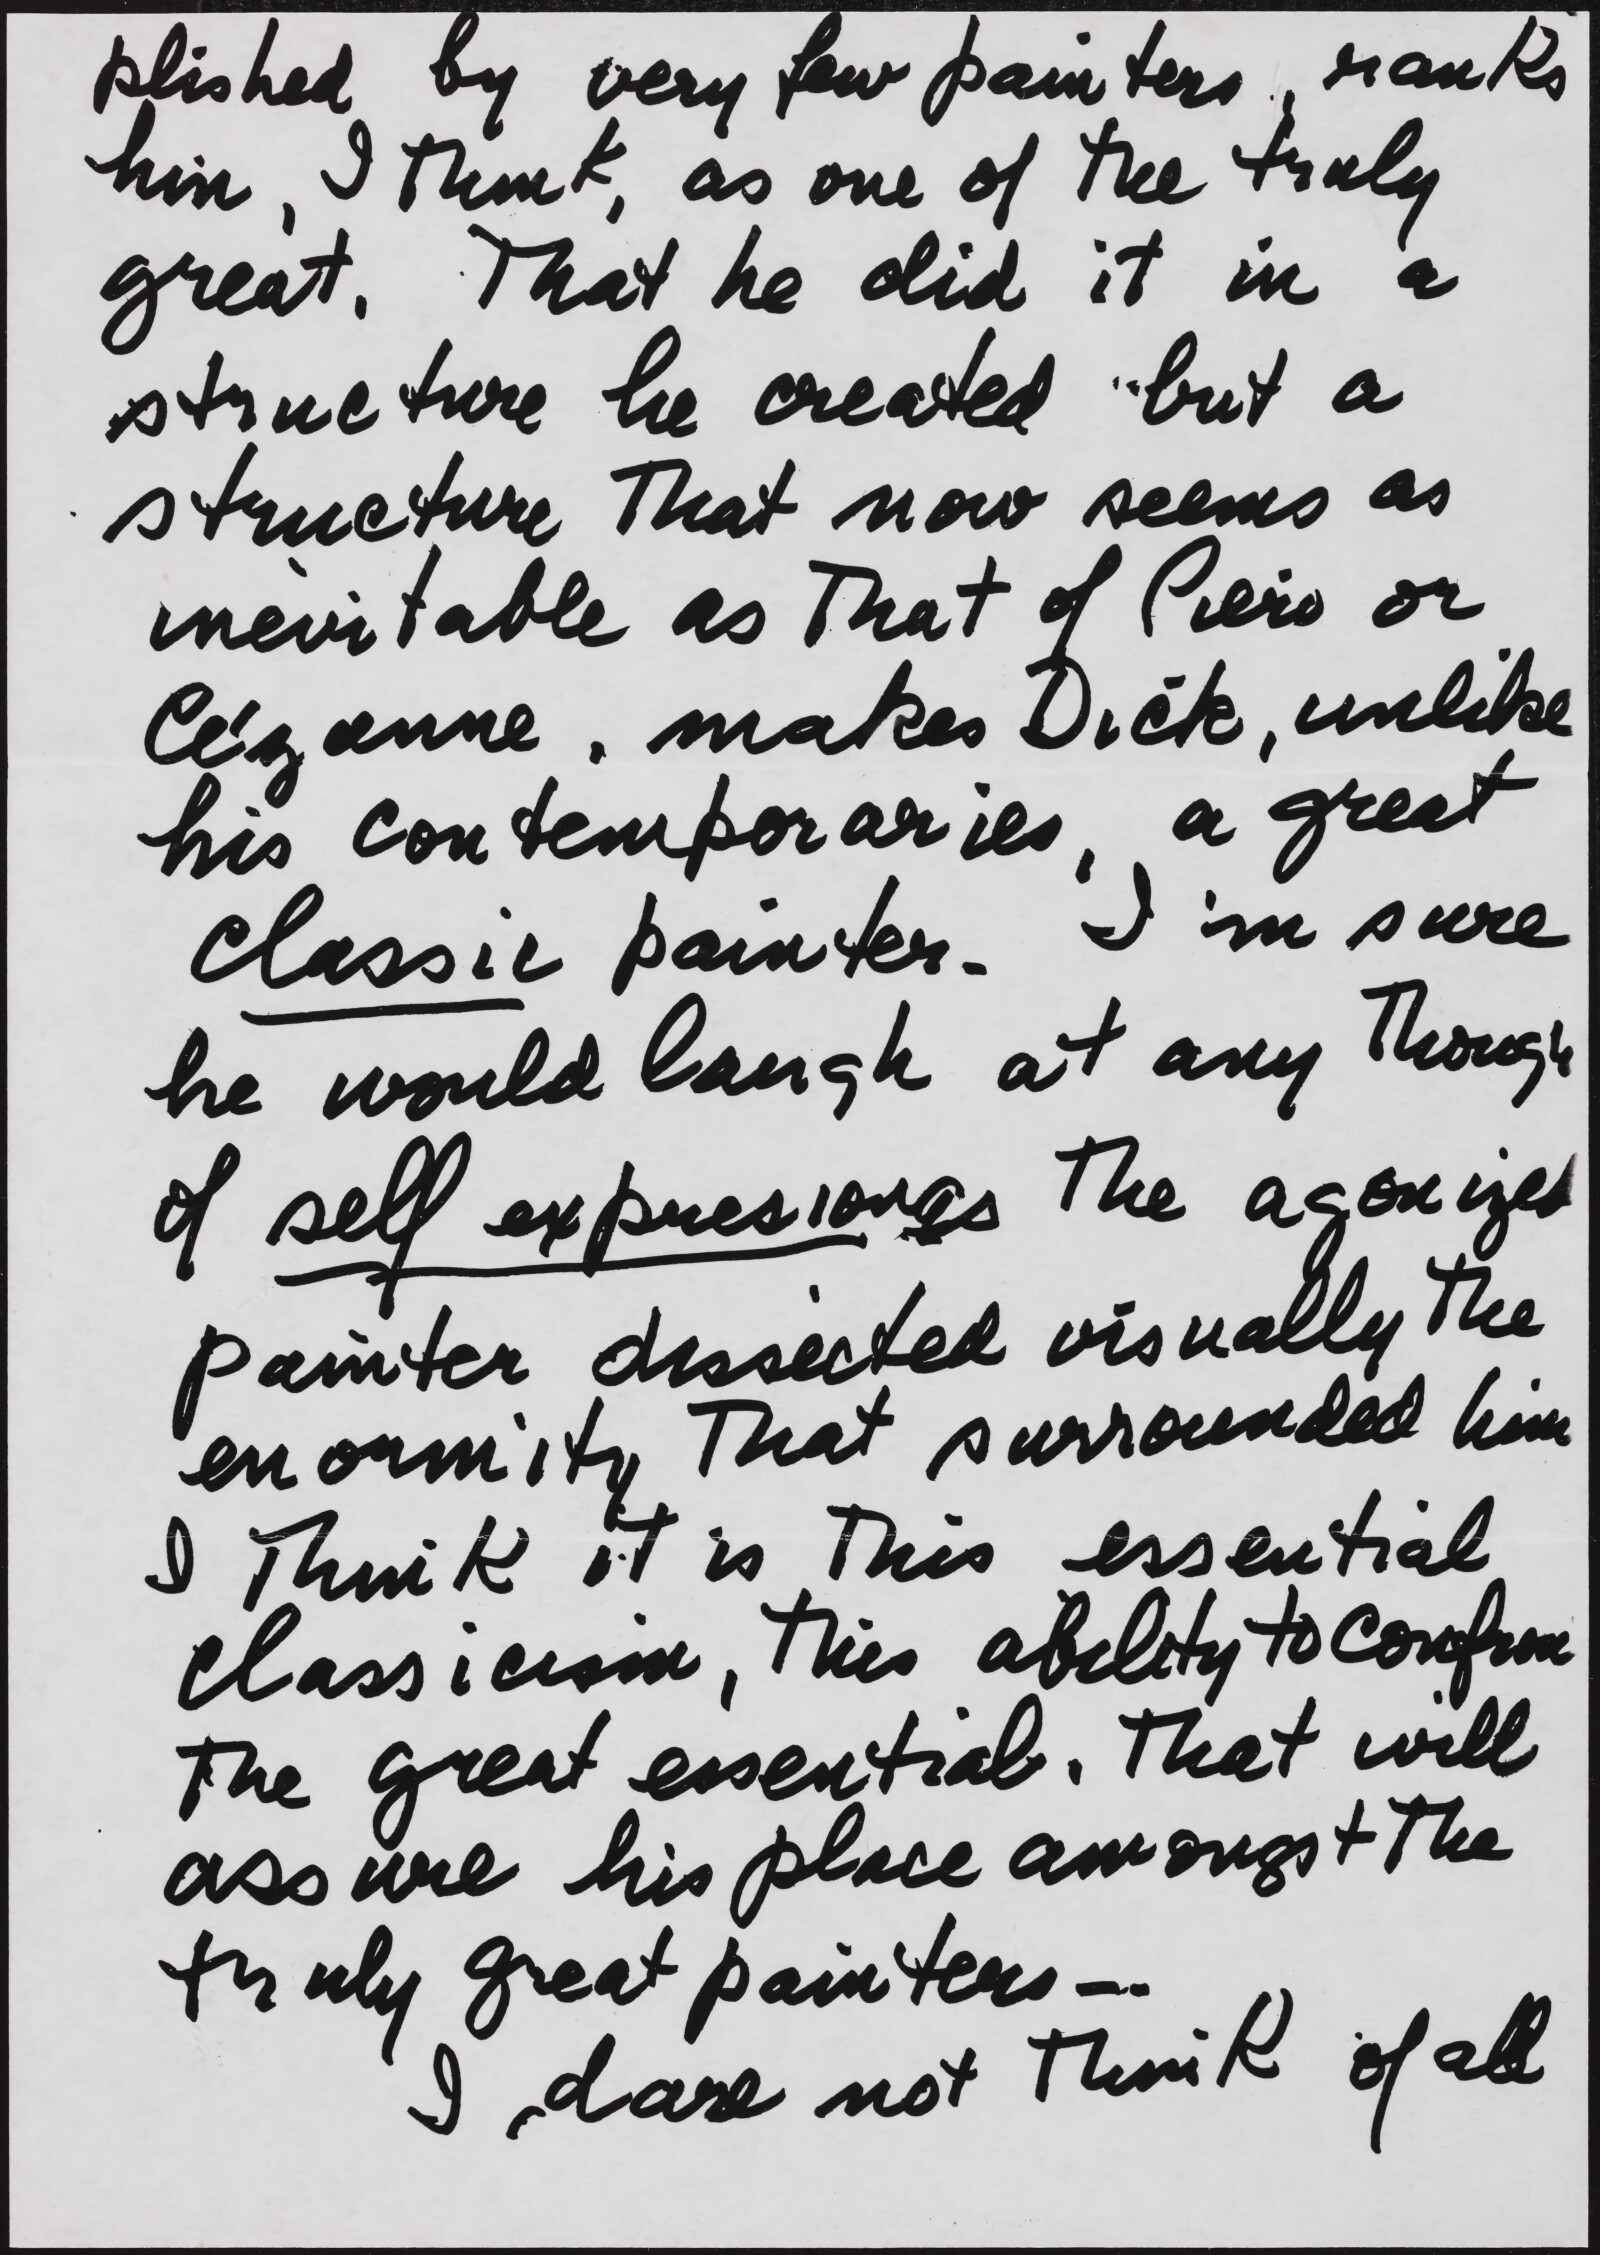 plished by very few painters, ranks
him, I think, as one of the truly
great. That he did it in a
structure he created but a
structure that now seems as
inevitable as that of Piero or
Cézanne. makes Dick, unlike
his contemporaries, a great
classic painter. I'm sure
he would laugh at any though
of self expression as the agonized
painter dissected visually the
enormity that surrounded him
I think it is this essential
classicism, this ability to confron
the great essential. That will
assure his place amongst the
truly great painters —
I dare not think of all